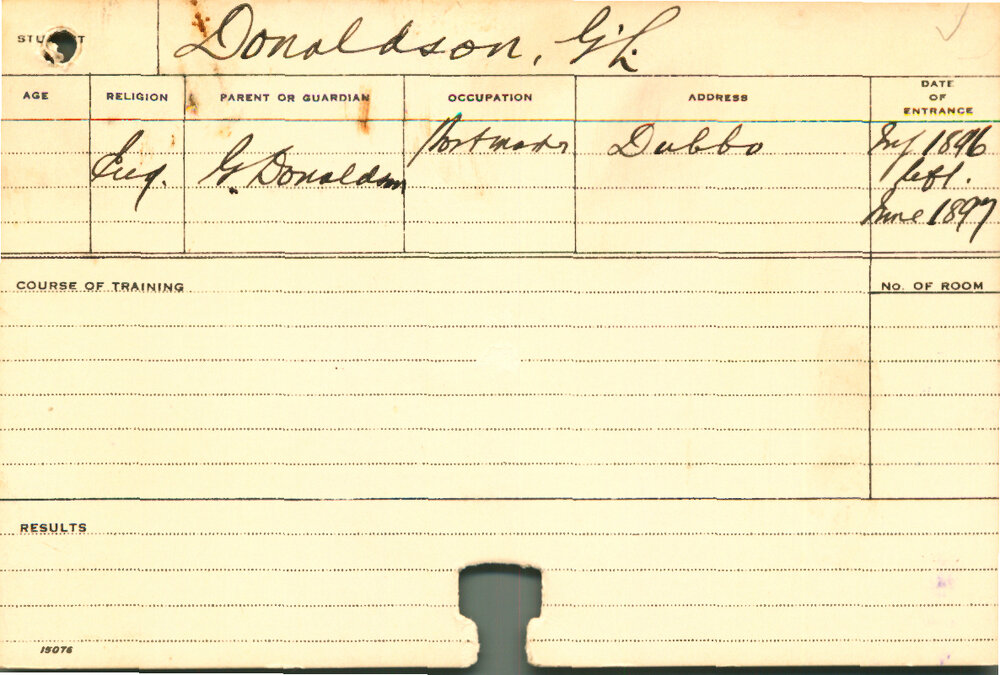 STUDENT Donaldson, G. L.
AGE RELIGION PARENT OR GUARDIAN OCCUPATION ADDRESS DATE OF ENTRANCE
Eng. G. Donaldson Postmaster Dubbo 1896
left.
June 1897
COURSE OF TRAINING No. OF ROOM
RESULTS
15076